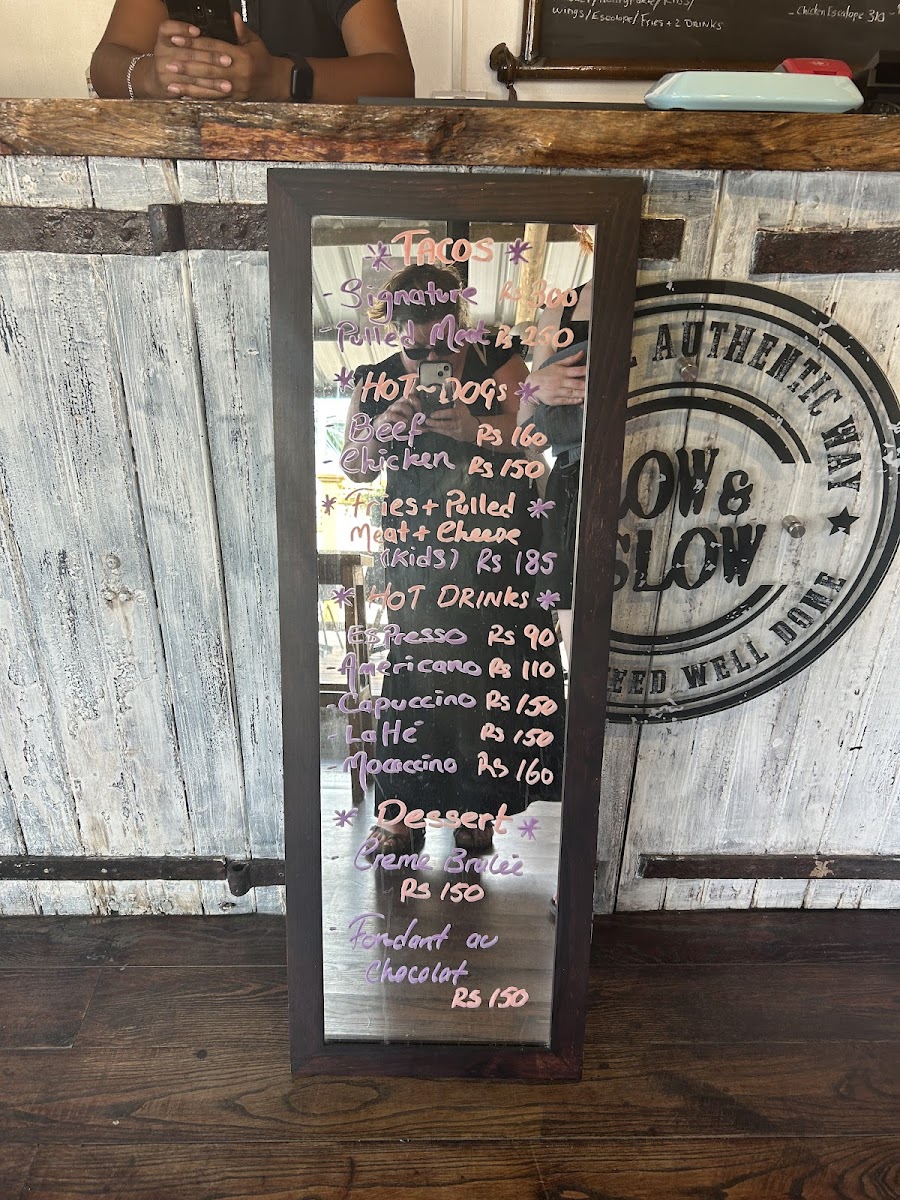 wings/Escalope/Fries + 2 DRINKS
- Chicken Escalope 310
* TACOS *
- Signature Rs 300
- Pulled Meat Rs 250
* HOT-DOGS *
Beef Rs 160
Chicken Rs 150
* Fries + Pulled *
Meat + Cheese
(Kids) Rs 185
* HOT DRINKS *
- Espresso Rs 90
- Americano Rs 110
- Capuccino Rs 150
- Latté Rs 150
- Mocaccino Rs 160
* Dessert *
Creme Brulée
Rs 150
Fondant au
Chocolat
Rs 150
AUTHENTIC WAY
OW &
SLOW
WELL DONE